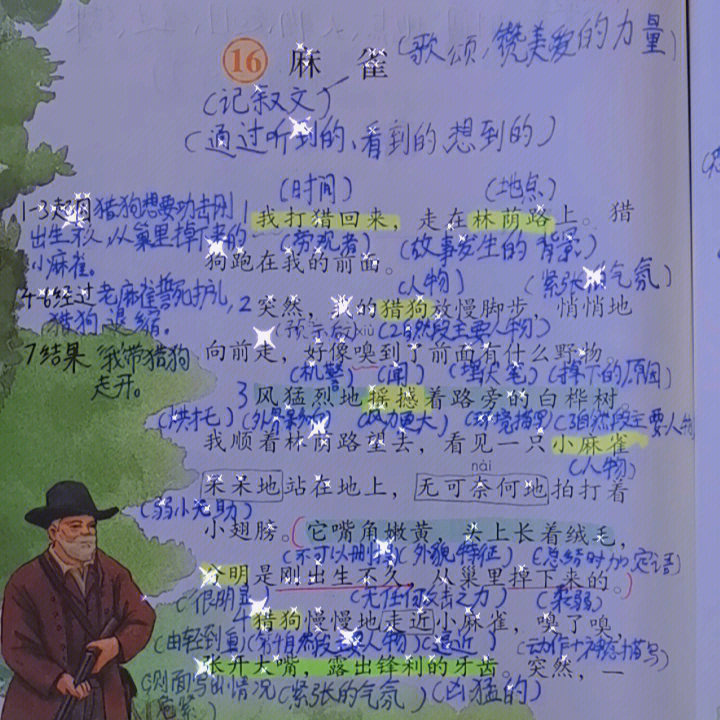 16 麻雀 (歌颂,赞美爱的力量)
(记叙文)
(通过听到的、看到的、想到的)
(时间) (地点)
1-3起因 猎狗想要攻击刚
出生不久,从巢里掉下来的
小麻雀。
1 我打猎回来,走在林荫路上。猎
(旁观者) (故事发生的背景)
狗跑在我的前面。
(人物) (紧张的气氛)
4-6经过 老麻雀誓死护儿,
猎狗退缩。
2 突然,我的猎狗放慢脚步,悄悄地
xiù (2自然段主要人物)
向前走,好像嗅到了前面有什么野物。
7结果 我带猎狗
走开。
(机警) (闻) (埋伏笔) (掉下的原因)
3 风猛烈地摇撼着路旁的白桦树。
(烘托) (风力更大) (环境描写) (3自然段主要人物
我顺着林荫路望去,看见一只小麻雀
nài (人物)
呆呆地站在地上,无可奈何地拍打着
(弱小无助)
小翅膀。它嘴角嫩黄,头上长着绒毛,
(不可以删掉) (外貌特征)
分明是刚出生不久,从巢里掉下来的。
(很明显) (无任何攻击之力) (柔弱)
4 猎狗慢慢地走近小麻雀,嗅了嗅,
(由轻到重) (逼近)
张开大嘴,露出锋利的牙齿。突然,一
(紧张的气氛) (凶猛的)